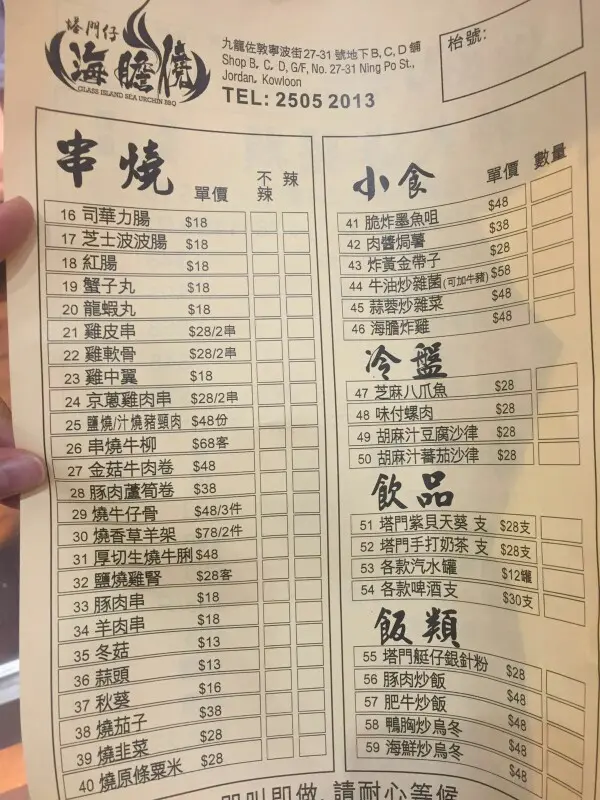 塔門仔
海膽燒
GLASS ISLAND SEA URCHIN BBQ
九龍佐敦寧波街27-31號地下B, C, D舖
Shop B, C, D, G/F, No. 27-31 Ning Po St.,
Jordan, Kowloon
TEL: 2505 2013
枱號:
串燒 單價 不辣 辣
16 司華力腸 $18
17 芝士波波腸 $18
18 紅腸 $18
19 蟹子丸 $18
20 龍蝦丸 $18
21 雞皮串 $28/2串
22 雞軟骨 $28/2串
23 雞中翼 $18
24 京蔥雞肉串 $28/2串
25 鹽燒/汁燒豬頸肉 $48份
26 串燒牛柳 $68客
27 金菇牛肉卷 $48
28 豚肉蘆筍卷 $38
29 燒牛仔骨 $48/3件
30 燒香草羊架 $78/2件
31 厚切生燒牛脷 $48
32 鹽燒雞腎 $28客
33 豚肉串 $18
34 羊肉串 $18
35 冬菇 $13
36 蒜頭 $13
37 秋葵 $16
38 燒茄子 $38
39 燒韭菜 $28
40 燒原條粟米 $28
小食 單價 數量
41 脆炸墨魚咀 $48
42 肉醬焗薯 $38
43 炸黃金帶子 $28
44 牛油炒雜菌(可加牛豬) $58
45 蒜蓉炒雜菜 $48
46 海膽炸雞 $48
冷盤
47 芝麻八爪魚 $28
48 味付螺肉 $28
49 胡麻汁豆腐沙律 $28
50 胡麻汁蕃茄沙律 $28
飲品
51 塔門紫貝天葵 支 $28支
52 塔門手打奶茶 支 $28支
53 各款汽水罐 $12罐
54 各款啤酒支 $30支
飯類
55 塔門艇仔銀針粉 $28
56 豚肉炒飯 $48
57 肥牛炒飯 $48
58 鴨胸炒烏冬 $48
59 海鮮炒烏冬 $48
即叫即做, 請耐心等候